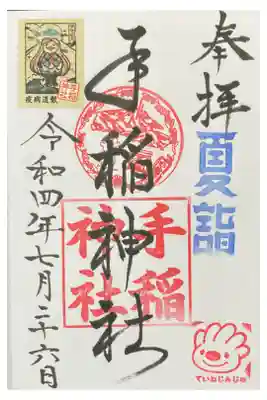 奉拝
夏詣
手稲神社
手稲
神社
令和四年七月二十六日
疫病退散
ていねじんじゃ